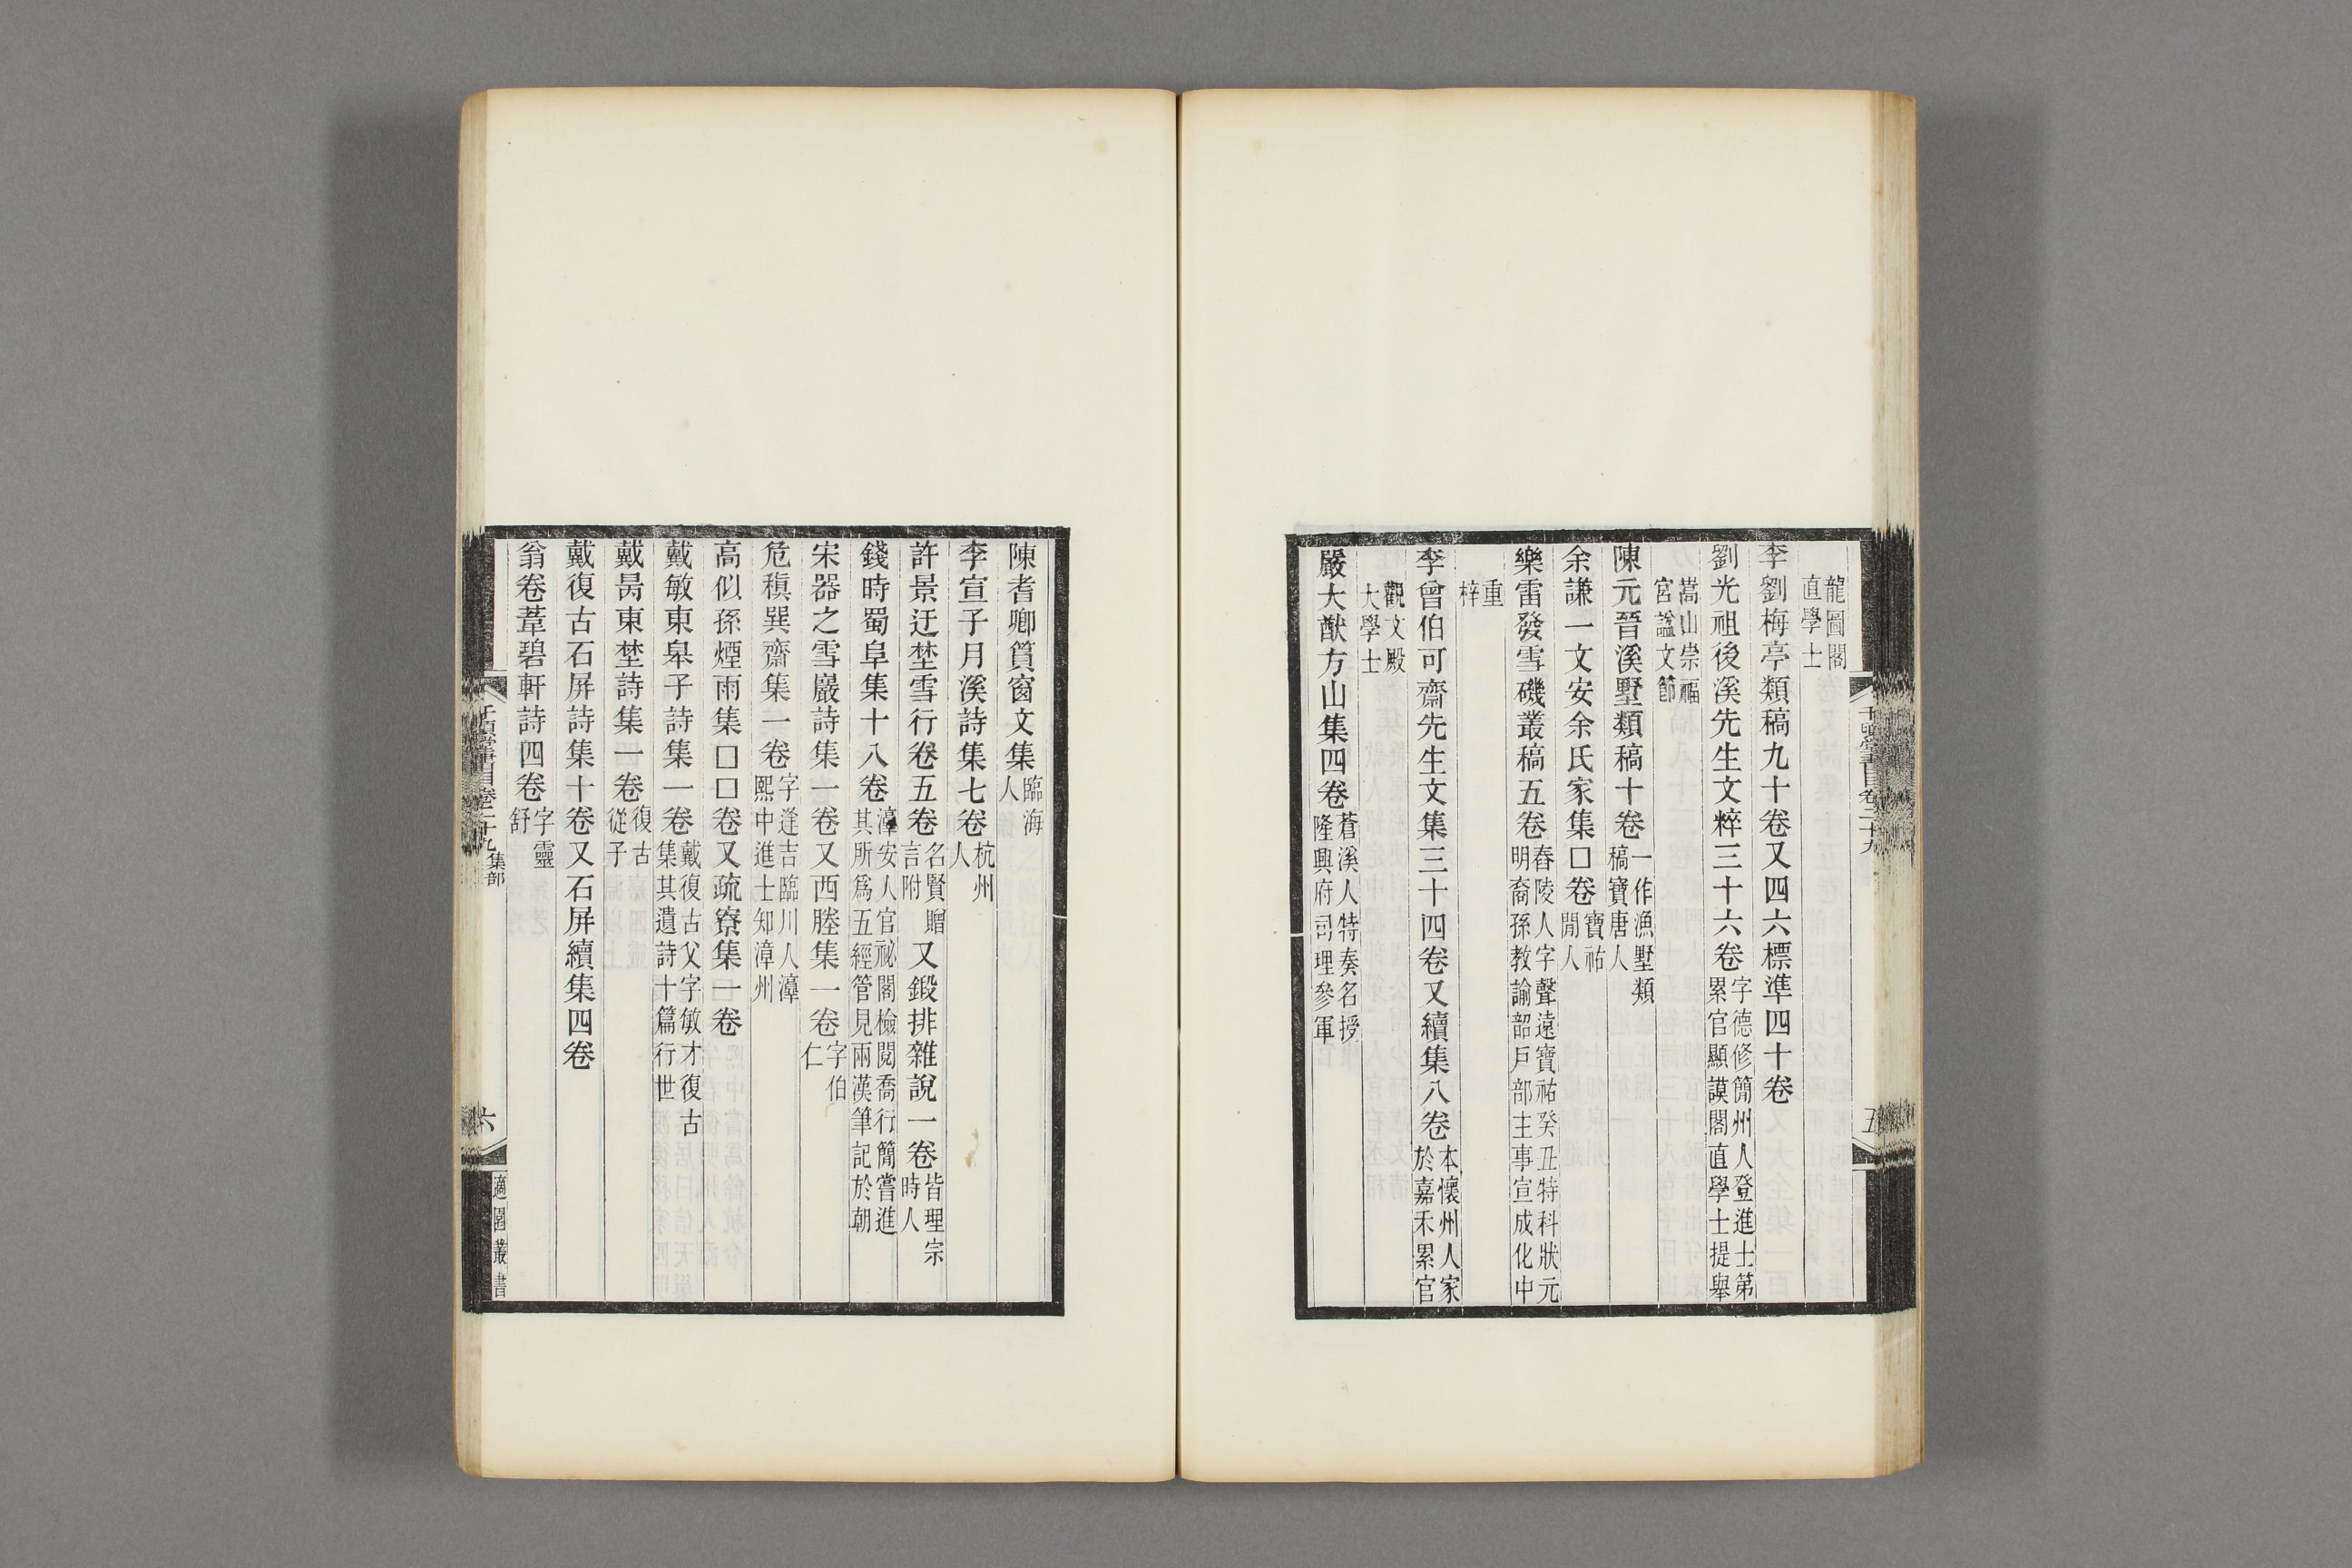 龍圖閣直學士
李劉梅亭類稿九十卷又四六標準四十卷
劉光祖後溪先生文粹三十六卷字德修簡州人登進士第累官顯謨閣直學士提舉
嵩山崇福宮諡文節
陳元晉漁墅類稿十卷一作漁墅類稿寶唐人
余謙一文安余氏家集□卷寶祐閒人
樂雷發雪磯叢稿五卷舂陵人字聲遠寶祐癸丑特科狀元明裔孫教諭韶戶部主事宣成化中
重梓
李曾伯可齋先生文集三十四卷又續集八卷本懷州人家於嘉禾累官
觀文殿大學士
嚴大猷方山集四卷蒼溪人特奏名授隆興府司理參軍
千頃堂書目卷二十九
五
陳耆卿篔窗文集臨海人
李宣子月溪詩集七卷杭州人
許景迂埜雪行卷五卷名賢贈言附又鍛排雜說一卷皆理宗時人
錢時蜀阜集十八卷漳安人官祕閣檢閱喬行簡嘗進其所爲五經管見兩漢筆記於朝
宋器之雪巖詩集一卷又西塍集一卷字伯仁
危稹巽齋集一卷字逢吉臨川人漳熙中進士知漳州
高似孫煙雨集□□卷又疏寮集一卷
戴敏東皋子詩集一卷戴復古父字敏才復古集其遺詩十篇行世
戴昺東埜詩集一卷復古從子
戴復古石屏詩集十卷又石屏續集四卷
翁卷葦碧軒詩四卷字靈舒
千頃堂書目卷二十九集部
六
適園叢書